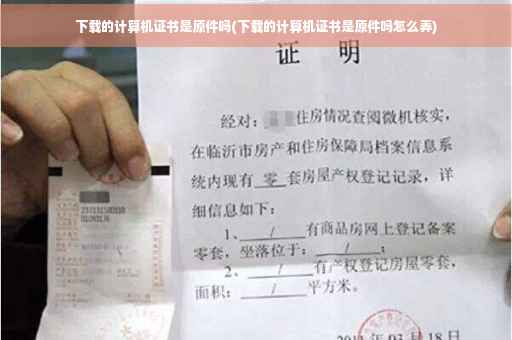 下载的计算机证书是原件吗(下载的计算机证书是原件吗怎么弄)
证 明
经对：住房情况查阅微机核实，
在临沂市房产和住房保障局档案信息系
统内现有 零 套房屋产权登记记录，详
细信息如下：
1、 / 有商品房网上登记备案
零套，坐落位于： / ；
2、 / 有产权登记房屋零套，
面积： / 平方米。